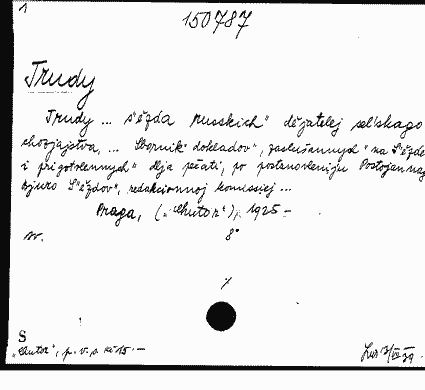 1
150787
Trudy
Trudy ... s"ězda russkich" dějatelej sel'skago
chozjajstva, ... Sbornik" dokladov", zaslušannych" na S"ězdě
i prigotvlennych" dlja pečati, po postanovleniju Postojannag
Bjuro S"ězdov", redakcionnoj komissiej ...
Praga, („Chutor"), 1925 –
8°
S
„Chutor", p. v. s. Kč 15.—